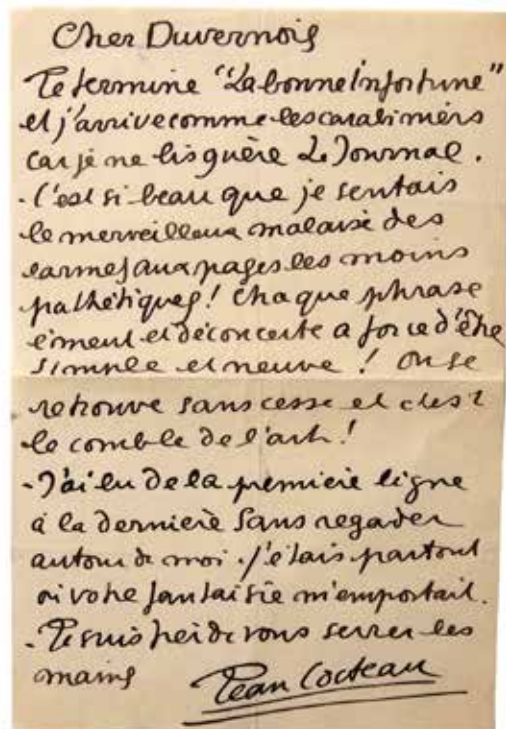 Cher Duvernois
Je termine "La bonne Infortune"
et j'arrive comme les carabiniers
car je ne lis guère Le Journal.
- C'est si beau que je sentais
le merveilleux malaise des
larmes aux pages les moins
pathétiques! Chaque phrase
émeut et déconcerte a force d'être
simple et neuve! On se
retrouve sans cesse et c'est
le comble de l'art!
- J'ai lu de la première ligne
à la dernière sans regarder
autour de moi. J'étais partout
où votre fantaisie m'emportait.
- Je suis de vous serrer les
mains
Jean Cocteau